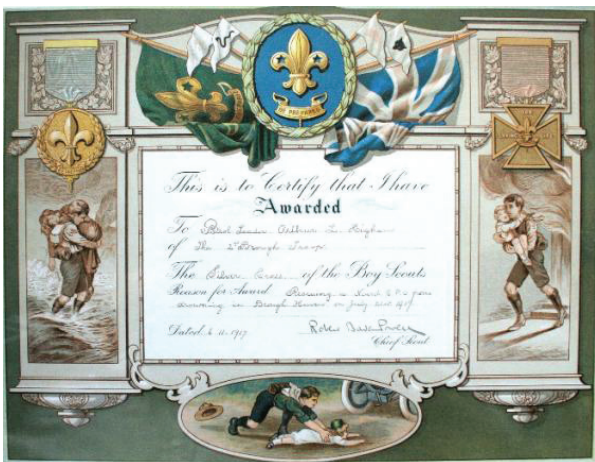 BE PREPARED
This is to Certify that I have
Awarded
To Patrol Leader Arthur L.
of The 1st Brough Troop
The Silver Cross of the Boy Scouts
Reason for Award Rescuing a
drowning in Brough Haven on July 21st 1917
Dated 6.11.1917
Robert Baden Powell
Chief Scout